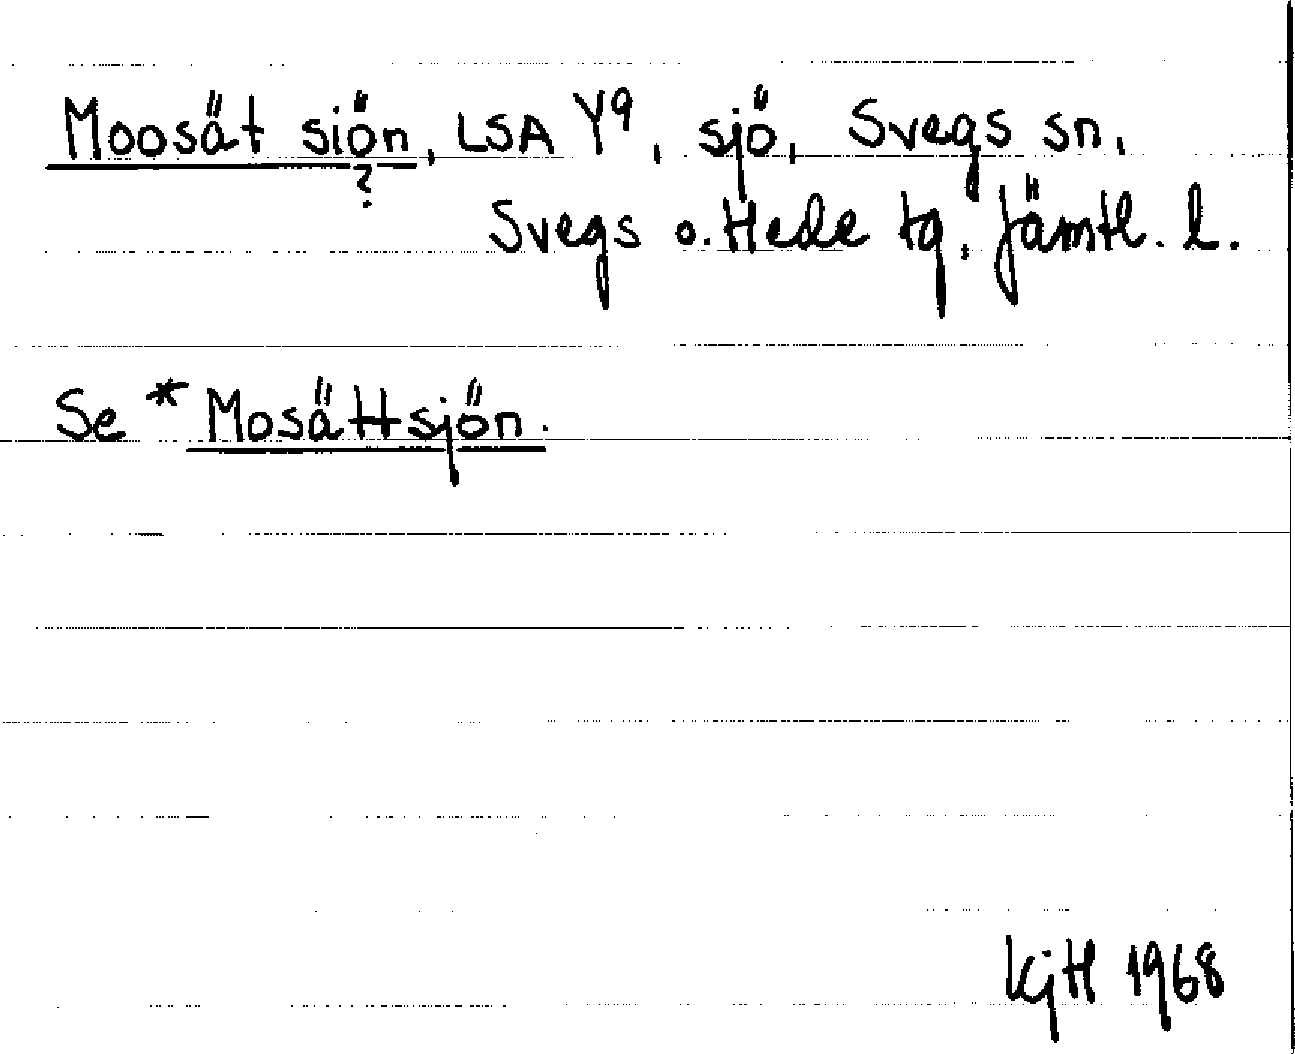 Moosät siön, LSA Y9, sjö, Svegs sn,
?
Svegs o. Hede tg, Jämtl. l.
Se *Mosättsjön.
KjH 1968